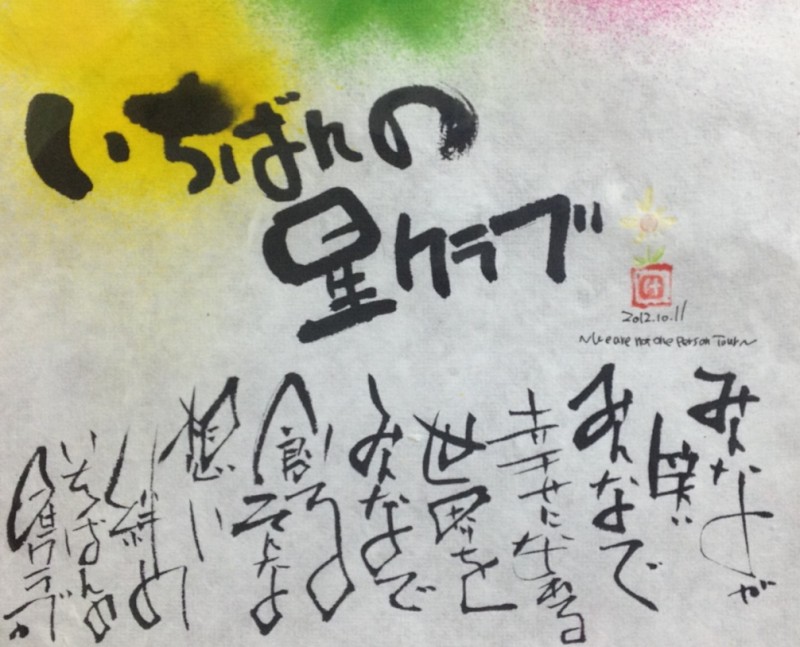 いちばんの
星クラブ
け
2012.10.11
~We are not one person Tour~
みんなが
笑い
みんなで
幸せになれる
世界を
みんなで
創ろう
そんな
想い
絆の
いちばんの
星クラブ